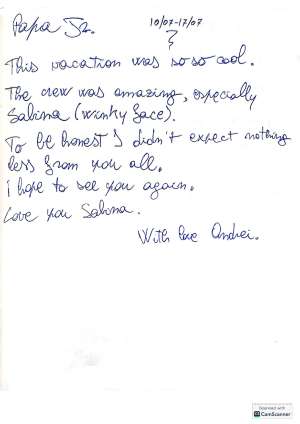 Papa Jz.
10/07-17/07
?
This vacation was so so cool.
The crew was amazing, especially
Sabina (winky face).
To be honest I didn't expect nothing
less from you all.
I hope to see you again.
Love you Sabina.
With love Andrei.
Scanned with
CamScanner